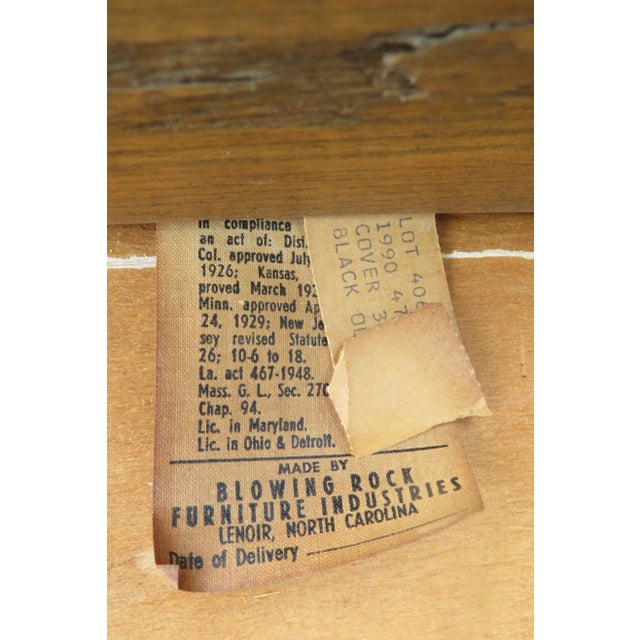 In compliance
an act of: Dist.
Col. approved July
1926; Kansas,
proved March
Minn. approved
24, 1929; New
sey revised Statute
26; 10-6 to 18.
La. act 467-1948.
Mass. G. L., Sec. 270
Chap. 94.
Lic. in Maryland.
Lic. in Ohio & Detroit.
MADE BY
BLOWING ROCK
FURNITURE INDUSTRIES
LENOIR, NORTH CAROLINA
Date of Delivery
LOT 406
1990 47
COVER 3
BLACK OL